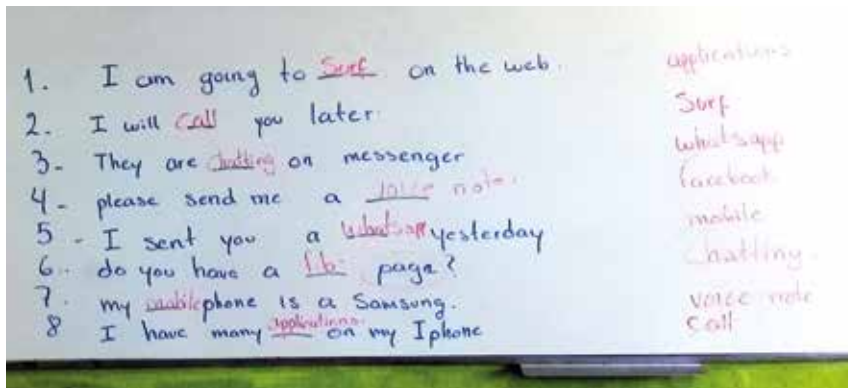 1. I am going to Surf on the web.
2. I will Call you later.
3- They are chatting on messenger
4- please send me a voice note.
5- I sent you a whatsapp yesterday
6- do you have a fb page?
7. my mobile phone is a Samsung.
8 I have many applications on my Iphone
applications
Surf
whatsapp
facebook
mobile
Chatting.
voice note
Call